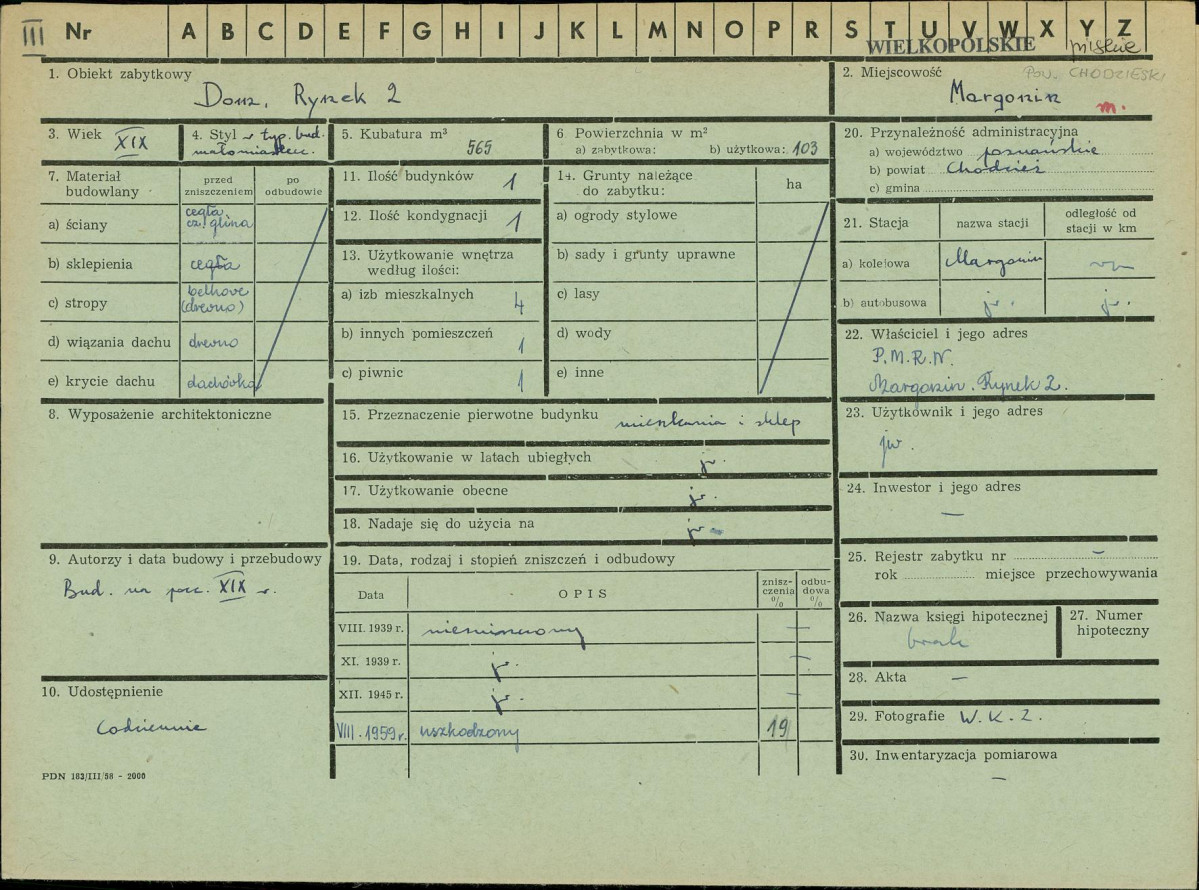 III Nr A B C D E F G H I J K L M N O P R S T U V W X Y Z
WIELKOPOLSKIE
pow. CHODZIESKI
1. Obiekt zabytkowy
Dom, Rynek 2
2. Miejscowość
Margonin m.
3. Wiek XIX
4. Styl w typ. bud.
małomiastecz.
5. Kubatura m³
565
6 Powierzchnia w m²
a) zabytkowa: b) użytkowa: 103
20. Przynależność administracyjna
a) województwo poznańskie
b) powiat Chodzież
c) gmina
7. Materiał
budowlany
przed
zniszczeniem
po
odbudowie
a) ściany cegła,
cz. glina
b) sklepienia cegła
c) stropy belkowe
(drewno)
d) wiązania dachu drewno
e) krycie dachu dachówka
11. Ilość budynków 1
12. Ilość kondygnacji 1
13. Użytkowanie wnętrza
według ilości:
a) izb mieszkalnych 4
b) innych pomieszczeń 1
c) piwnic 1
14. Grunty należące
do zabytku:
ha
a) ogrody stylowe
b) sady i grunty uprawne
c) lasy
d) wody
e) inne
21. Stacja nazwa stacji odległość od
stacji w km
a) kolejowa Margonin
b) autobusowa jw. jw.
22. Właściciel i jego adres
P.M.R.N.
Margonin, Rynek 2.
8. Wyposażenie architektoniczne
15. Przeznaczenie pierwotne budynku mieszkania i sklep
16. Użytkowanie w latach ubiegłych jw.
17. Użytkowanie obecne jw.
18. Nadaje się do użycia na jw. -
23. Użytkownik i jego adres
jw.
24. Inwestor i jego adres
—
9. Autorzy i data budowy i przebudowy
Bud. na pocz. XIX w.
19. Data, rodzaj i stopień zniszczeń i odbudowy
Data OPIS znisz-
czenia
%
odbu-
dowa
%
VIII. 1939 r. niezniszczony —
XI. 1939 r. jw. —
XII. 1945 r. jw. —
VIII. 1959 r. uszkodzony 19
25. Rejestr zabytku nr —
rok miejsce przechowywania
26. Nazwa księgi hipotecznej
brak
27. Numer
hipoteczny
28. Akta —
29. Fotografie W.K.Z.
30. Inwentaryzacja pomiarowa
—
10. Udostępnienie
Codziennie
PDN 183/III/58 - 2000